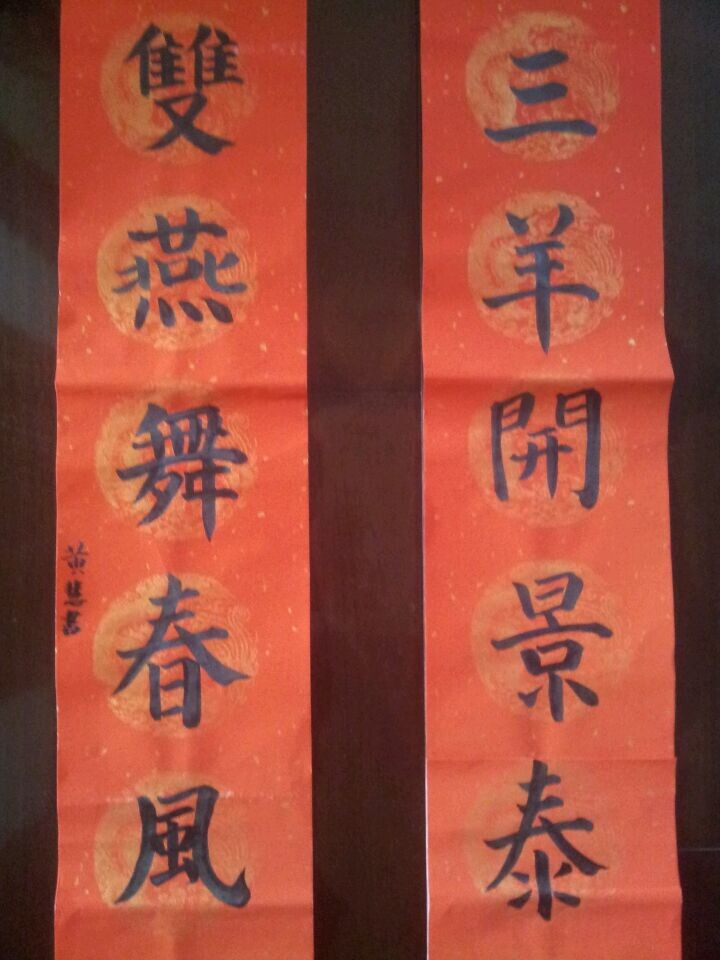 三羊開景泰
雙燕舞春風
黄慧書